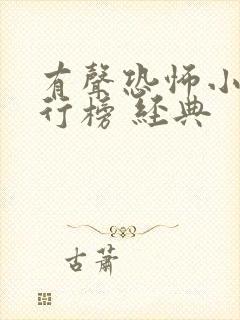 有聲恐怖小
行榜 經典
古蕭